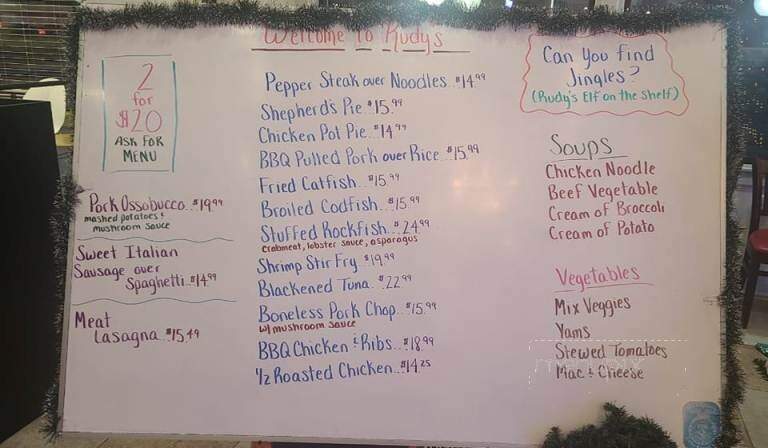 Welcome to Rudys
2
for
$20
ASK FOR
MENU
Pork Ossobucco..$19.99
mashed potatoes &
mushroom sauce
Sweet Italian
Sausage over
Spaghetti..$14.99
Meat
Lasagna..$15.49
Pepper Steak over Noodles..$14.99
Shepherd's Pie.$15.99
Chicken Pot Pie..$14.99
BBQ Pulled Pork over Rice..$15.99
Fried Catfish..$15.99
Broiled Codfish..$15.99
Stuffed Rockfish..$24.99
crabmeat, lobster sauce, asparagus
Shrimp Stir Fry..$19.99
Blackened Tuna..$22.99
Boneless Pork Chop..$15.99
w/ mushroom sauce
BBQ Chicken & Ribs..$18.99
1/2 Roasted Chicken..$14.25
Can you find
Jingles?
(Rudy's Elf on the Shelf)
Soups
Chicken Noodle
Beef Vegetable
Cream of Broccoli
Cream of Potato
Vegetables
Mix Veggies
Yams
Stewed Tomatoes
Mac & Cheese